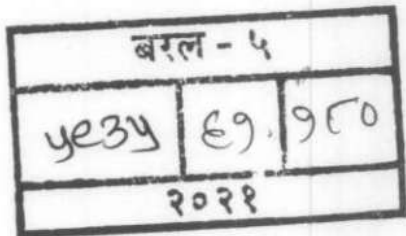 बरल - ५
५९३५ ६१. १८०
२०२१